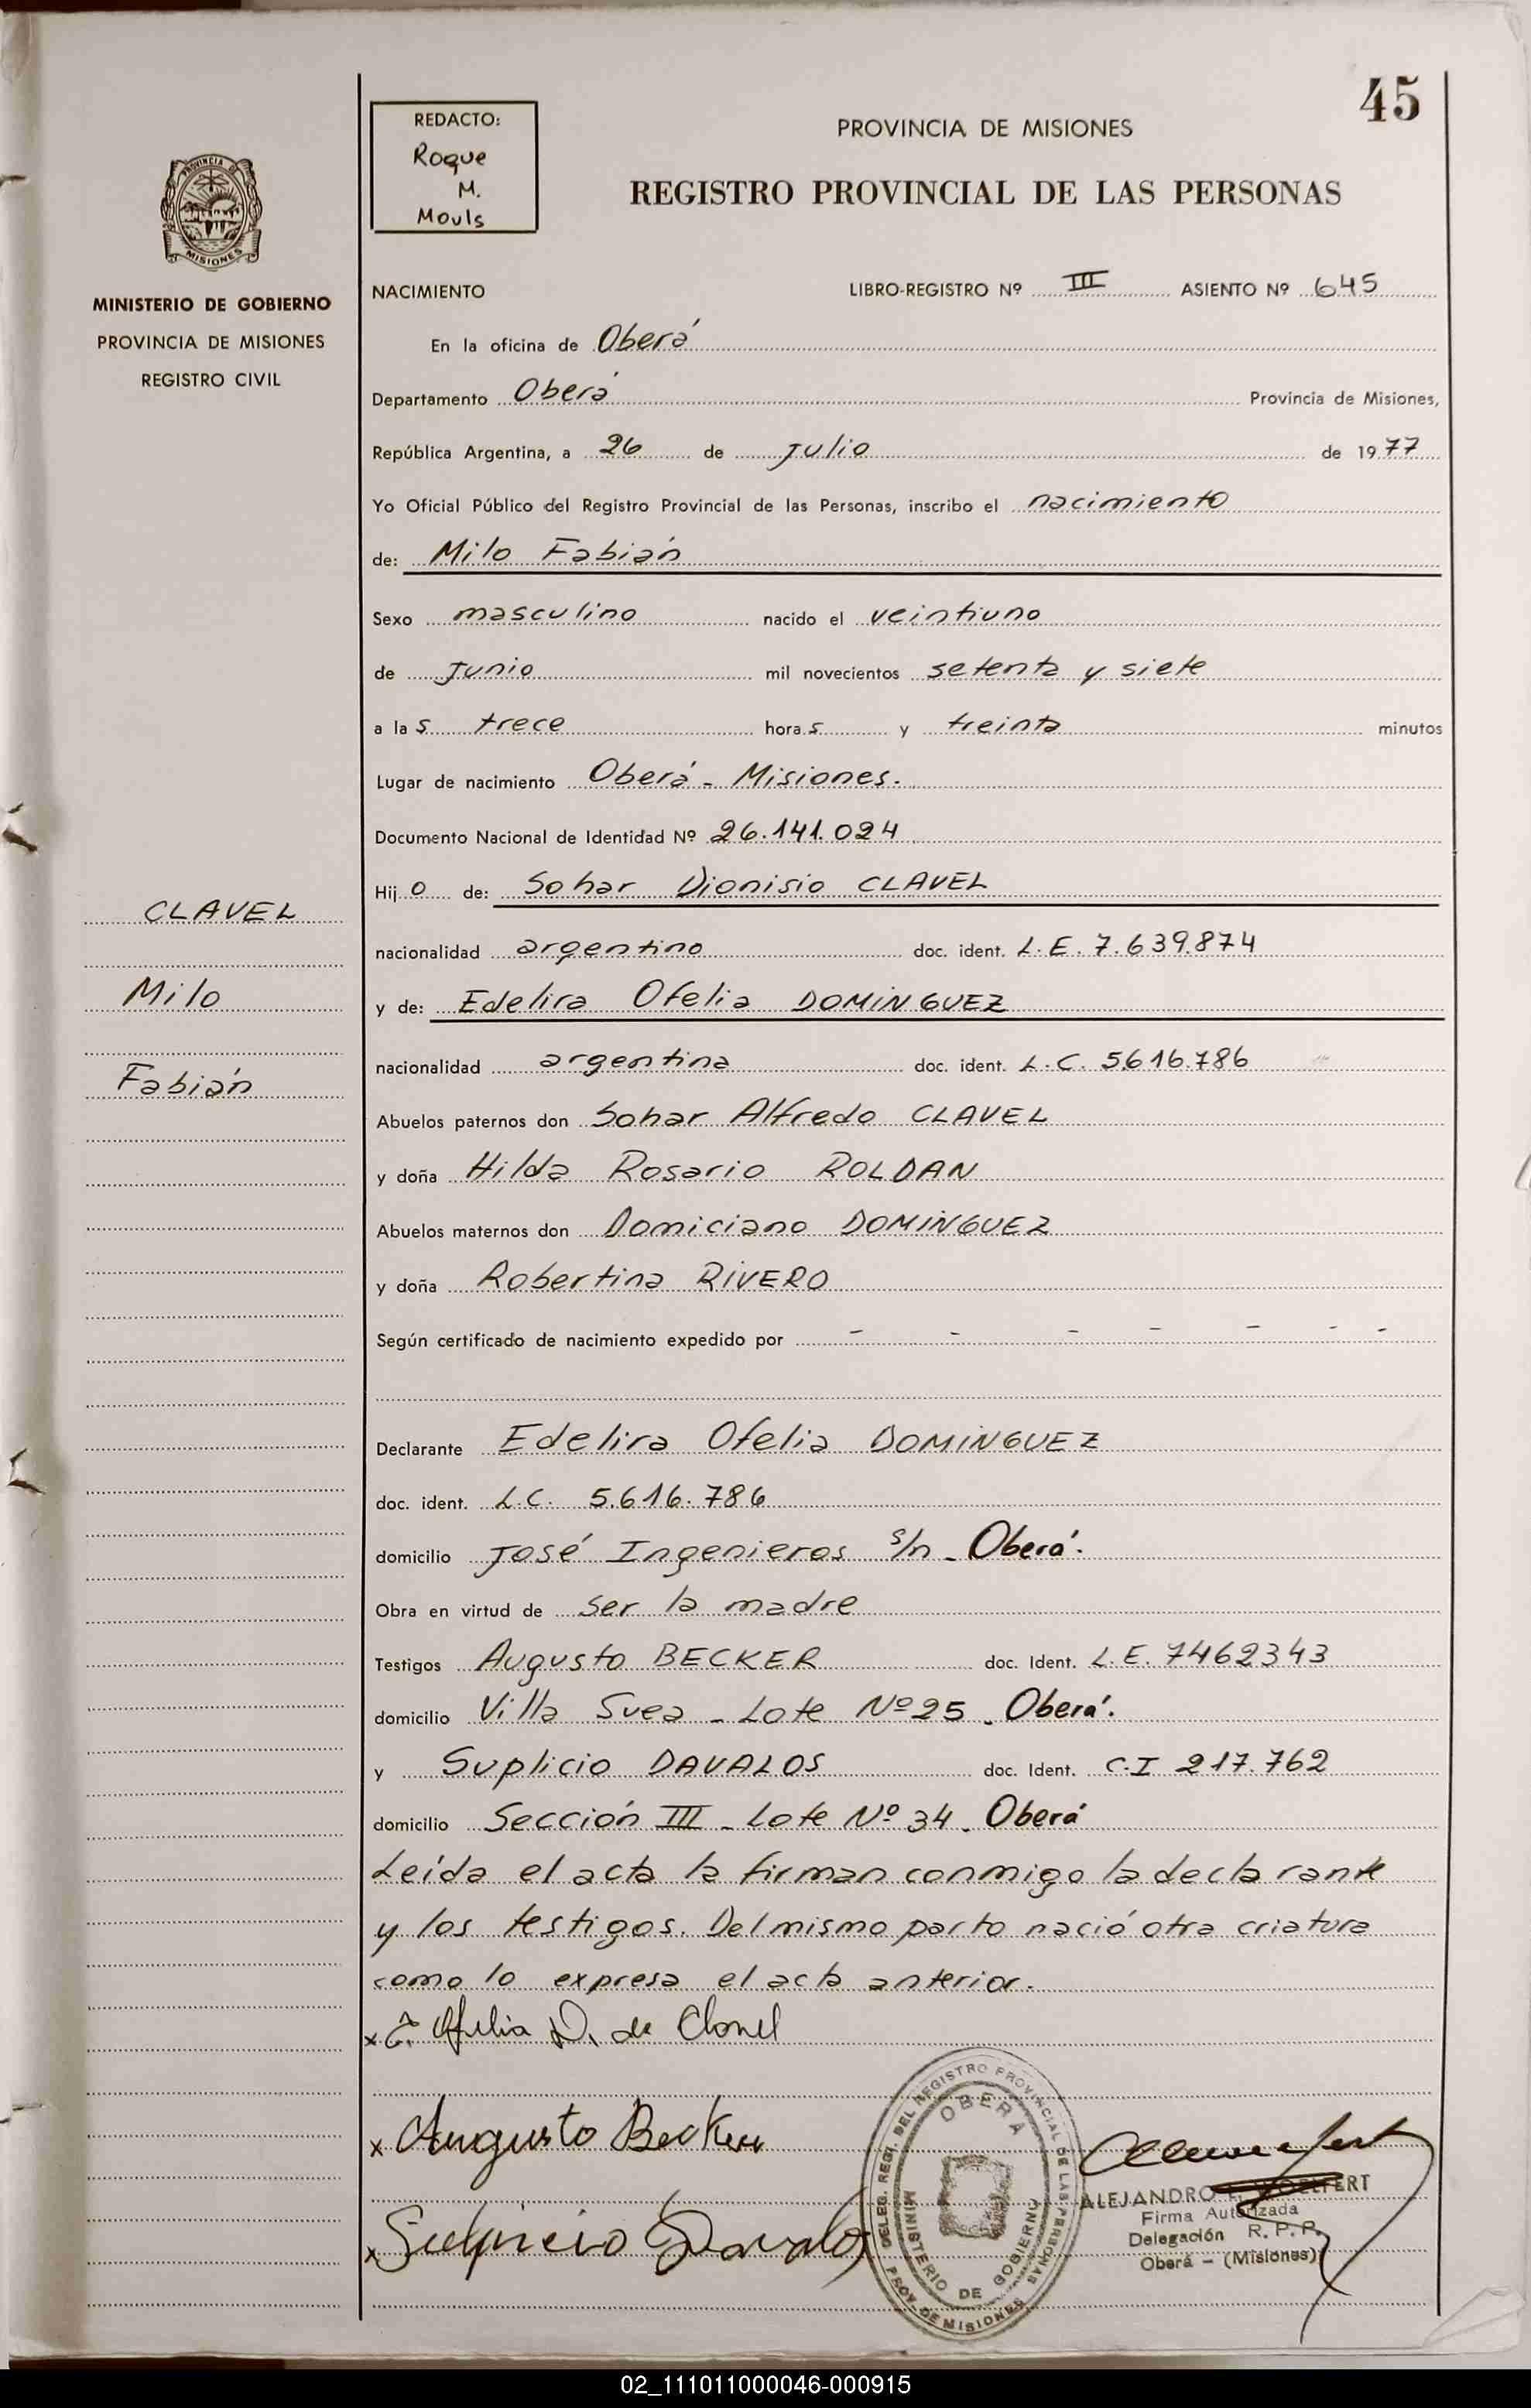 45
REDACTO:
Roque
M.
Mouls
PROVINCIA DE MISIONES
REGISTRO PROVINCIAL DE LAS PERSONAS
PROVINCIA DE
MISIONES
MINISTERIO DE GOBIERNO
PROVINCIA DE MISIONES
REGISTRO CIVIL
NACIMIENTO LIBRO-REGISTRO Nº III ASIENTO Nº 645
En la oficina de Oberá
Departamento Oberá Provincia de Misiones,
República Argentina, a 26 de Julio de 1977
Yo Oficial Público del Registro Provincial de las Personas, inscribo el nacimiento
de: Milo Fabián
Sexo masculino nacido el veintiuno
de Junio mil novecientos setenta y siete
a las trece horas y treinta minutos
Lugar de nacimiento Oberá - Misiones.
Documento Nacional de Identidad Nº 26.141.024
Hijo de: Sohar Dionisio CLAVEL
CLAVEL
nacionalidad argentino doc. ident. L.E. 7.639.874
Milo
y de: Edelira Ofelia DOMINGUEZ
nacionalidad argentina doc. ident. L.C. 5616.786
Fabián
Abuelos paternos don Sohar Alfredo CLAVEL
y doña Hilda Rosario ROLDAN
Abuelos maternos don Domiciano DOMINGUEZ
y doña Robertina RIVERO
Según certificado de nacimiento expedido por - - - - - - -
Declarante Edelira Ofelia DOMINGUEZ
doc. ident. L.C. 5.616.786
domicilio José Ingenieros s/n - Oberá.
Obra en virtud de ser la madre
Testigos Augusto BECKER doc. Ident. L.E. 7462343
domicilio Villa Svea - Lote Nº 25 - Oberá.
y Suplicio DAVALOS doc. Ident. C.I 217.762
domicilio Sección III - Lote Nº 34 - Oberá
Leída el acta la firman conmigo la declarante
y los testigos. Del mismo parto nació otra criatura
como lo expresa el acta anterior.
x E. Ofelia D. de Clavel
x Augusto Becker
x Sulpicio Davalos
DELEG. REGI. DEL REGISTRO PROVINCIAL DE LAS PERSONAS
OBERA
MINISTERIO DE GOBIERNO
PROV. DE MISIONES
ALEJANDRO
Firma Autorizada
Delegación R.P.P.
Oberá - (Misiones)
02_111011000046-000915